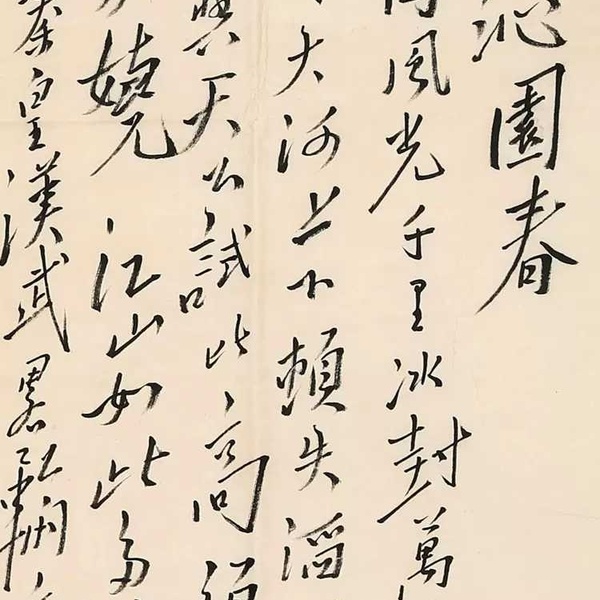 沁園春
風光千里冰封萬
大河上下頓失滔
天公試比高
嬈江山如此多
秦皇漢武畧